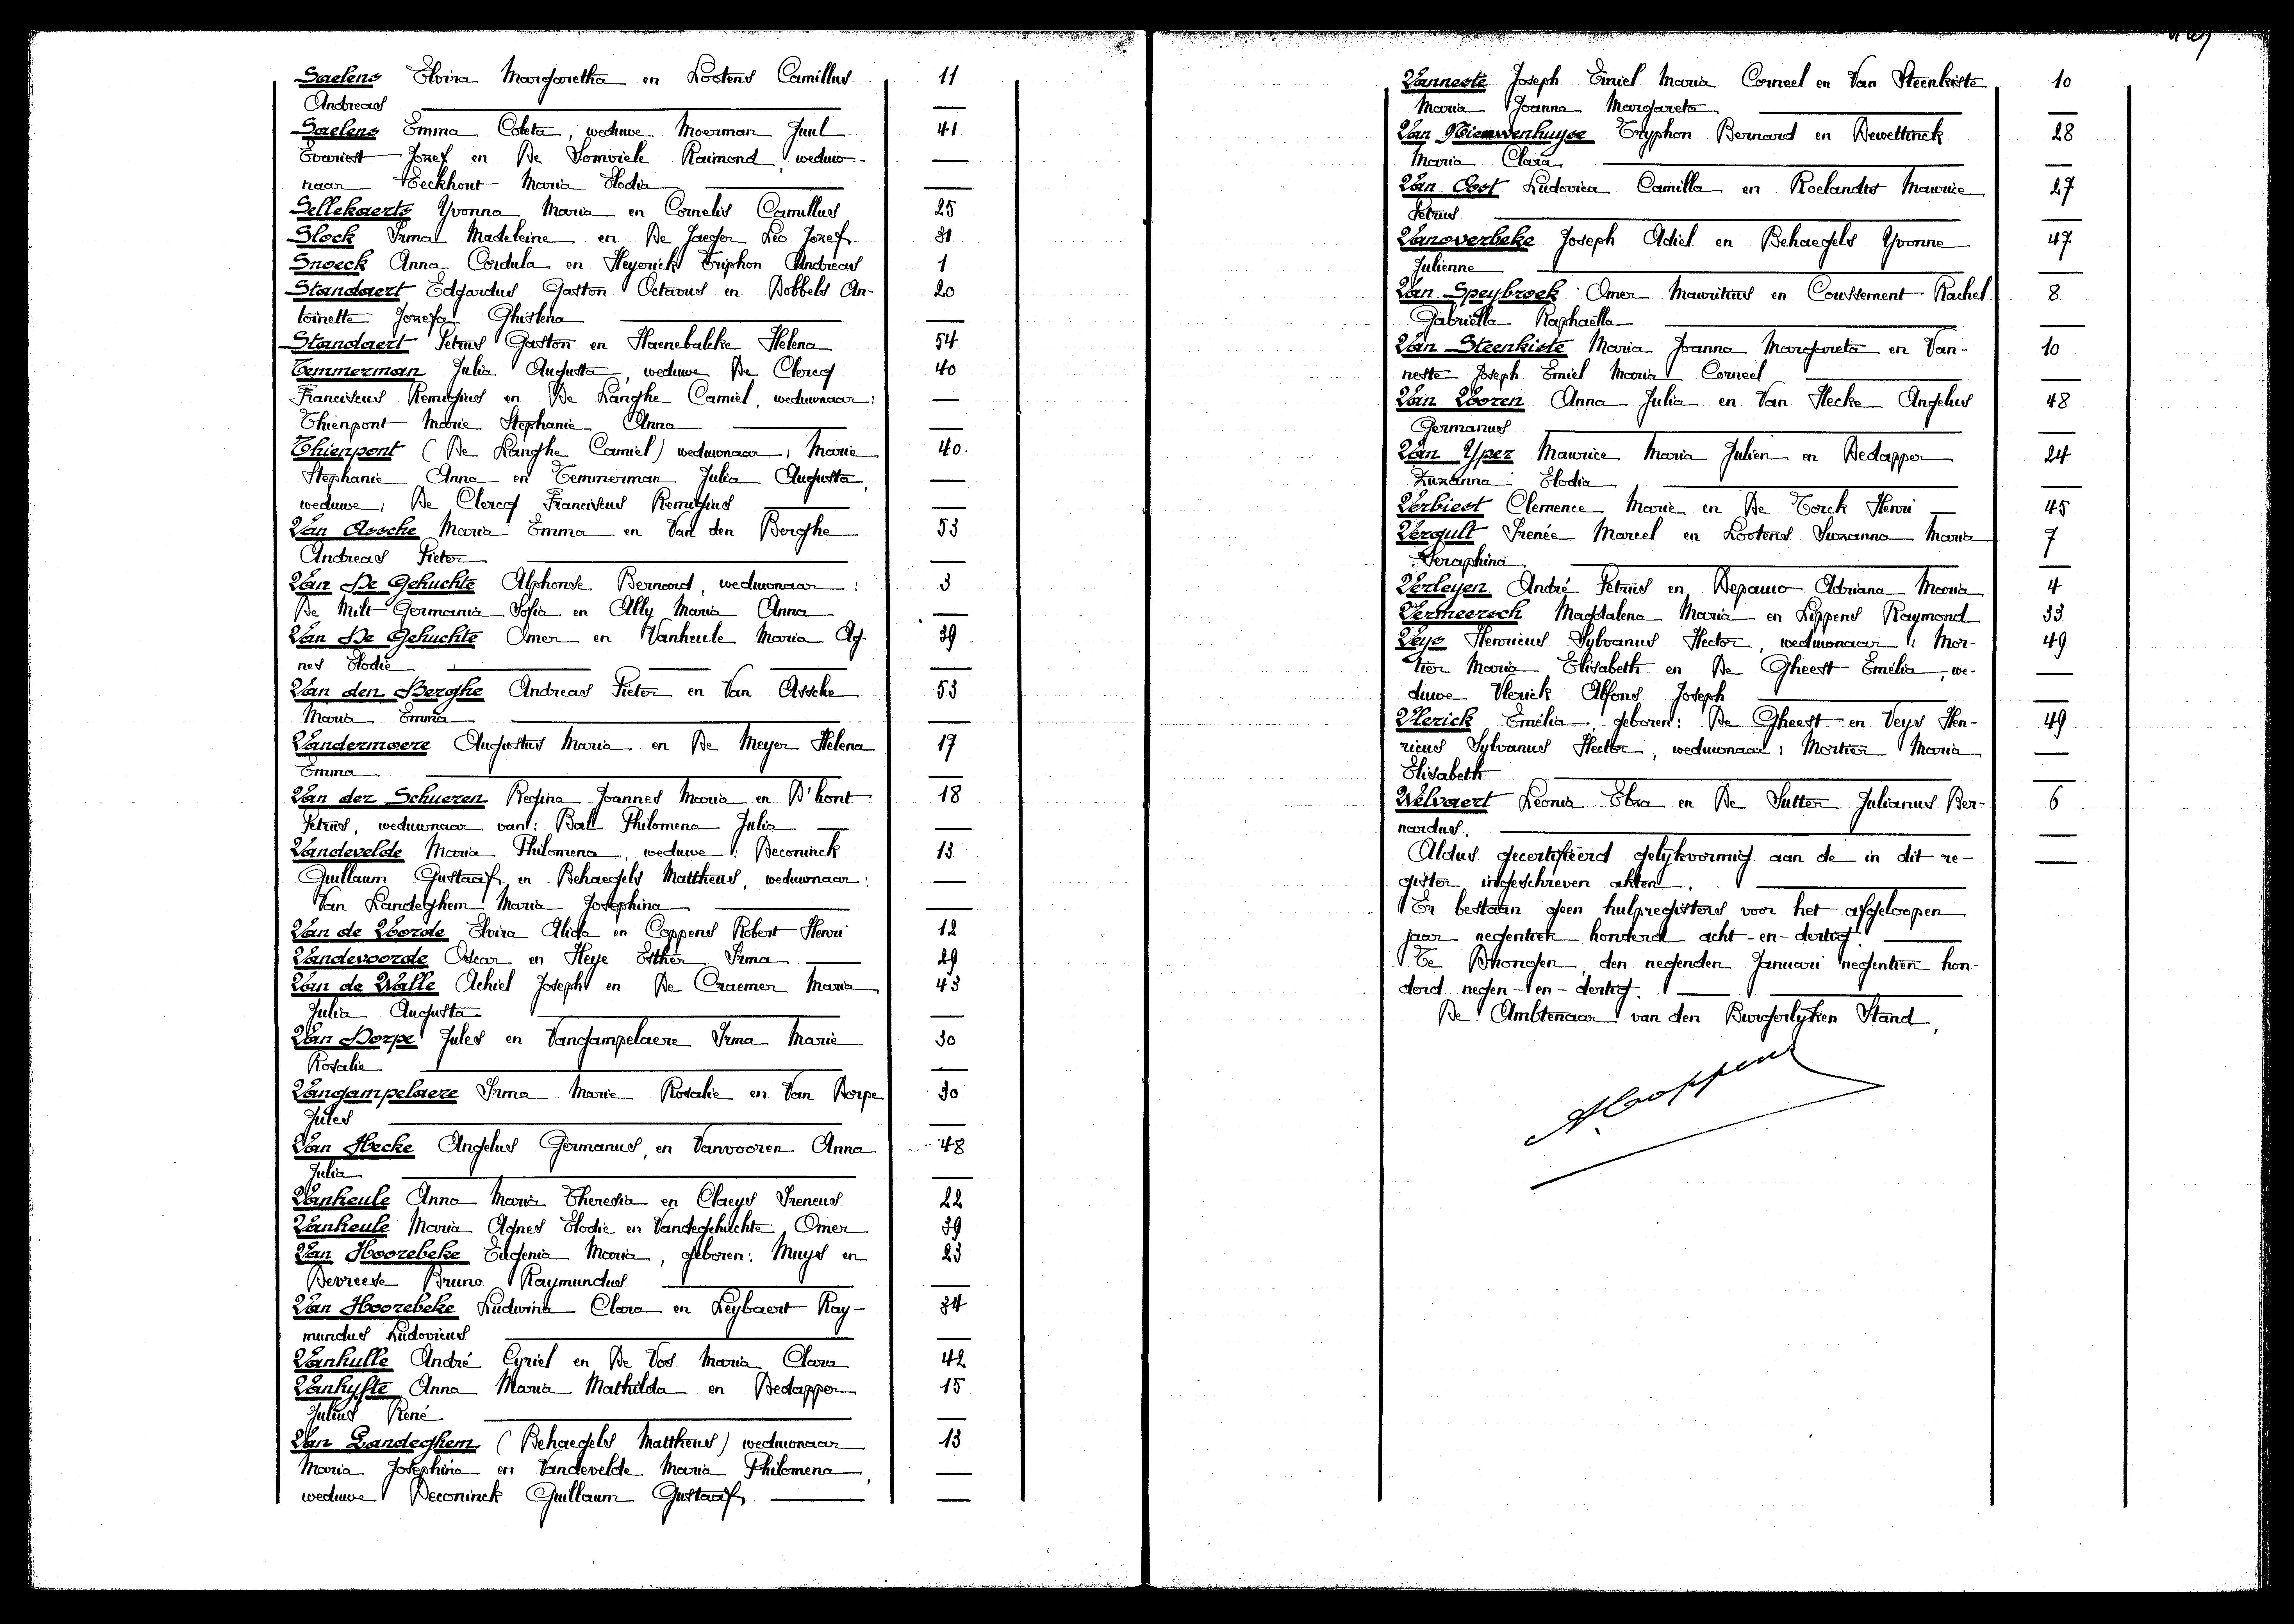 Saelens Elvira Margaretha en Lootens Camillus 11
Andreas —
Saelens Emma Coleta, weduwe Moerman Juul 41
Evariest Jozef en De Somviele Raimond, weduw- —
naar Eeckhout Maria Elodia —
Sellekaerts Yvonna Maria en Cornelis Camillus 25
Slock Irma Madeleine en De Jaeger Leo Jozef 31
Snoeck Anna Cordula en Heyerick Triphon Andreas 1
Standaert Edgardus Gaston Octavus en Dobbels An- 20
toinette Jozefa Ghislena —
Standaert Petrus Gaston en Haenebalcke Helena 54
Temmerman Julia Augusta, weduwe De Clercq 40
Franciscus Remigius en De Langhe Camiel, weduwnaar: —
Thienpont Marie Stephanie Anna —
Thienpont (De Langhe Camiel) weduwnaar, Marie 40.
Stephanie Anna en Temmerman Julia Augusta, —
weduwe, De Clercq Franciscus Remigius —
Van Assche Maria Emma en Van den Berghe 53
Andreas Pieter —
Van De Gehuchte Alphonse Bernard, weduwnaar: 3
De Milt Germania Sofia en Ally Maria Anna —
Van De Gehuchte Omer en Vanheule Maria Ag- 39
nes Elodie —
Van den Berghe Andreas Pieter en Van Assche 53
Maria Emma —
Vandermoere Augustus Maria en De Meyer Helena 17
Emma —
Van der Schueren Regina Joannes Maria en D'hont 18
Petrus, weduwnaar van: Bal Philomena Julia —
Vandevelde Maria Philomena, weduwe: Deconinck 13
Guillaum Gustaaf en Behaegels Mattheus, weduwnaar: —
Van Landeghem Maria Josephina —
Van de Voorde Elvira Alida en Coppens Robert Henri 12
Vandevoorde Oscar en Heye Esther Irma 29
Van de Walle Achiel Joseph en De Craemer Maria 43
Julia Augusta —
Van Dorpe Jules en Vangampelaere Irma Marie 30
Rosalie —
Vangampelaere Irma Marie Rosalie en Van Dorpe 30
Jules —
Van Hecke Angelus Germanus, en Vanvooren Anna 48
Julia —
Vanheule Anna Maria Theresia en Claeys Ireneus 22
Vanheule Maria Agnes Elodie en Vandegehuchte Omer 39
Van Hoorebeke Eugenia Maria, geboren: Muys en 23
Devreese Bruno Raymundus —
Van Hoorebeke Ludwina Clara en Leybaert Ray- 34
mundus Ludovicus —
Vanhulle André Cyriel en De Vos Maria Clara 42
Vanhyfte Anna Maria Mathilda en Dedapper 15
Julius René —
Van Landeghem (Behaegels Mattheus) weduwnaar 13
Maria Josephina en Vandevelde Maria Philomena, —
weduwe Deconinck Guillaum Gustaaf —
Vanneste Joseph Emiel Maria Corneel en Van Steenkiste 10
Maria Joanna Margareta —
Van Nieuwenhuyse Tryphon Bernard en Dewettinck 28
Maria Clara —
Van Oost Ludovica Camilla en Roelandts Maurice 27
Petrus —
Vanoverbeke Joseph Adiel en Behaegels Yvonne 47
Julienne —
Van Speybroek Omer Mauritius en Coussement Rachel 8
Gabriella Raphaëlla —
Van Steenkiste Maria Joanna Margareta en Van- 10
neste Joseph Emiel Maria Corneel —
Van Vooren Anna Julia en Van Hecke Angelus 48
Germanus —
Van Yper Maurice Maria Julien en Dedapper 24
Zuzanna Elodia —
Verbiest Clemence Marie en De Torck Henri 45
Vergult Irenée Marcel en Lootens Suzanna Maria 7
Seraphina —
Verleyen André Petrus en Depauw Adriana Maria 4
Vermeersch Magdalena Maria en Lippens Raymond 33
Veys Henricus Sylvanus Hector, weduwnaar: Mor- 49
tier Maria Elisabeth en De Gheest Emélia, we- —
duwe Vlerick Alfons Joseph —
Vlerick Emélia, geboren: De Gheest en Veys Hen- 49
ricus Sylvanus Hector, weduwnaar: Mortier Maria —
Elisabeth —
Welvaert Leonia Elza en De Sutter Julianus Ber- 6
nardus. —
Aldus gecertifiëerd gelijkvormig aan de in dit re- —
gister ingeschreven akten.
Er bestaan geen hulpregisters voor het afgeloopen
jaar negentien honderd acht-en-dertig.
Te Drongen, den negenden Januari negentien hon-
derd negen-en-dertig.
De Ambtenaar van den Burgerlijken Stand,
A. Coppens